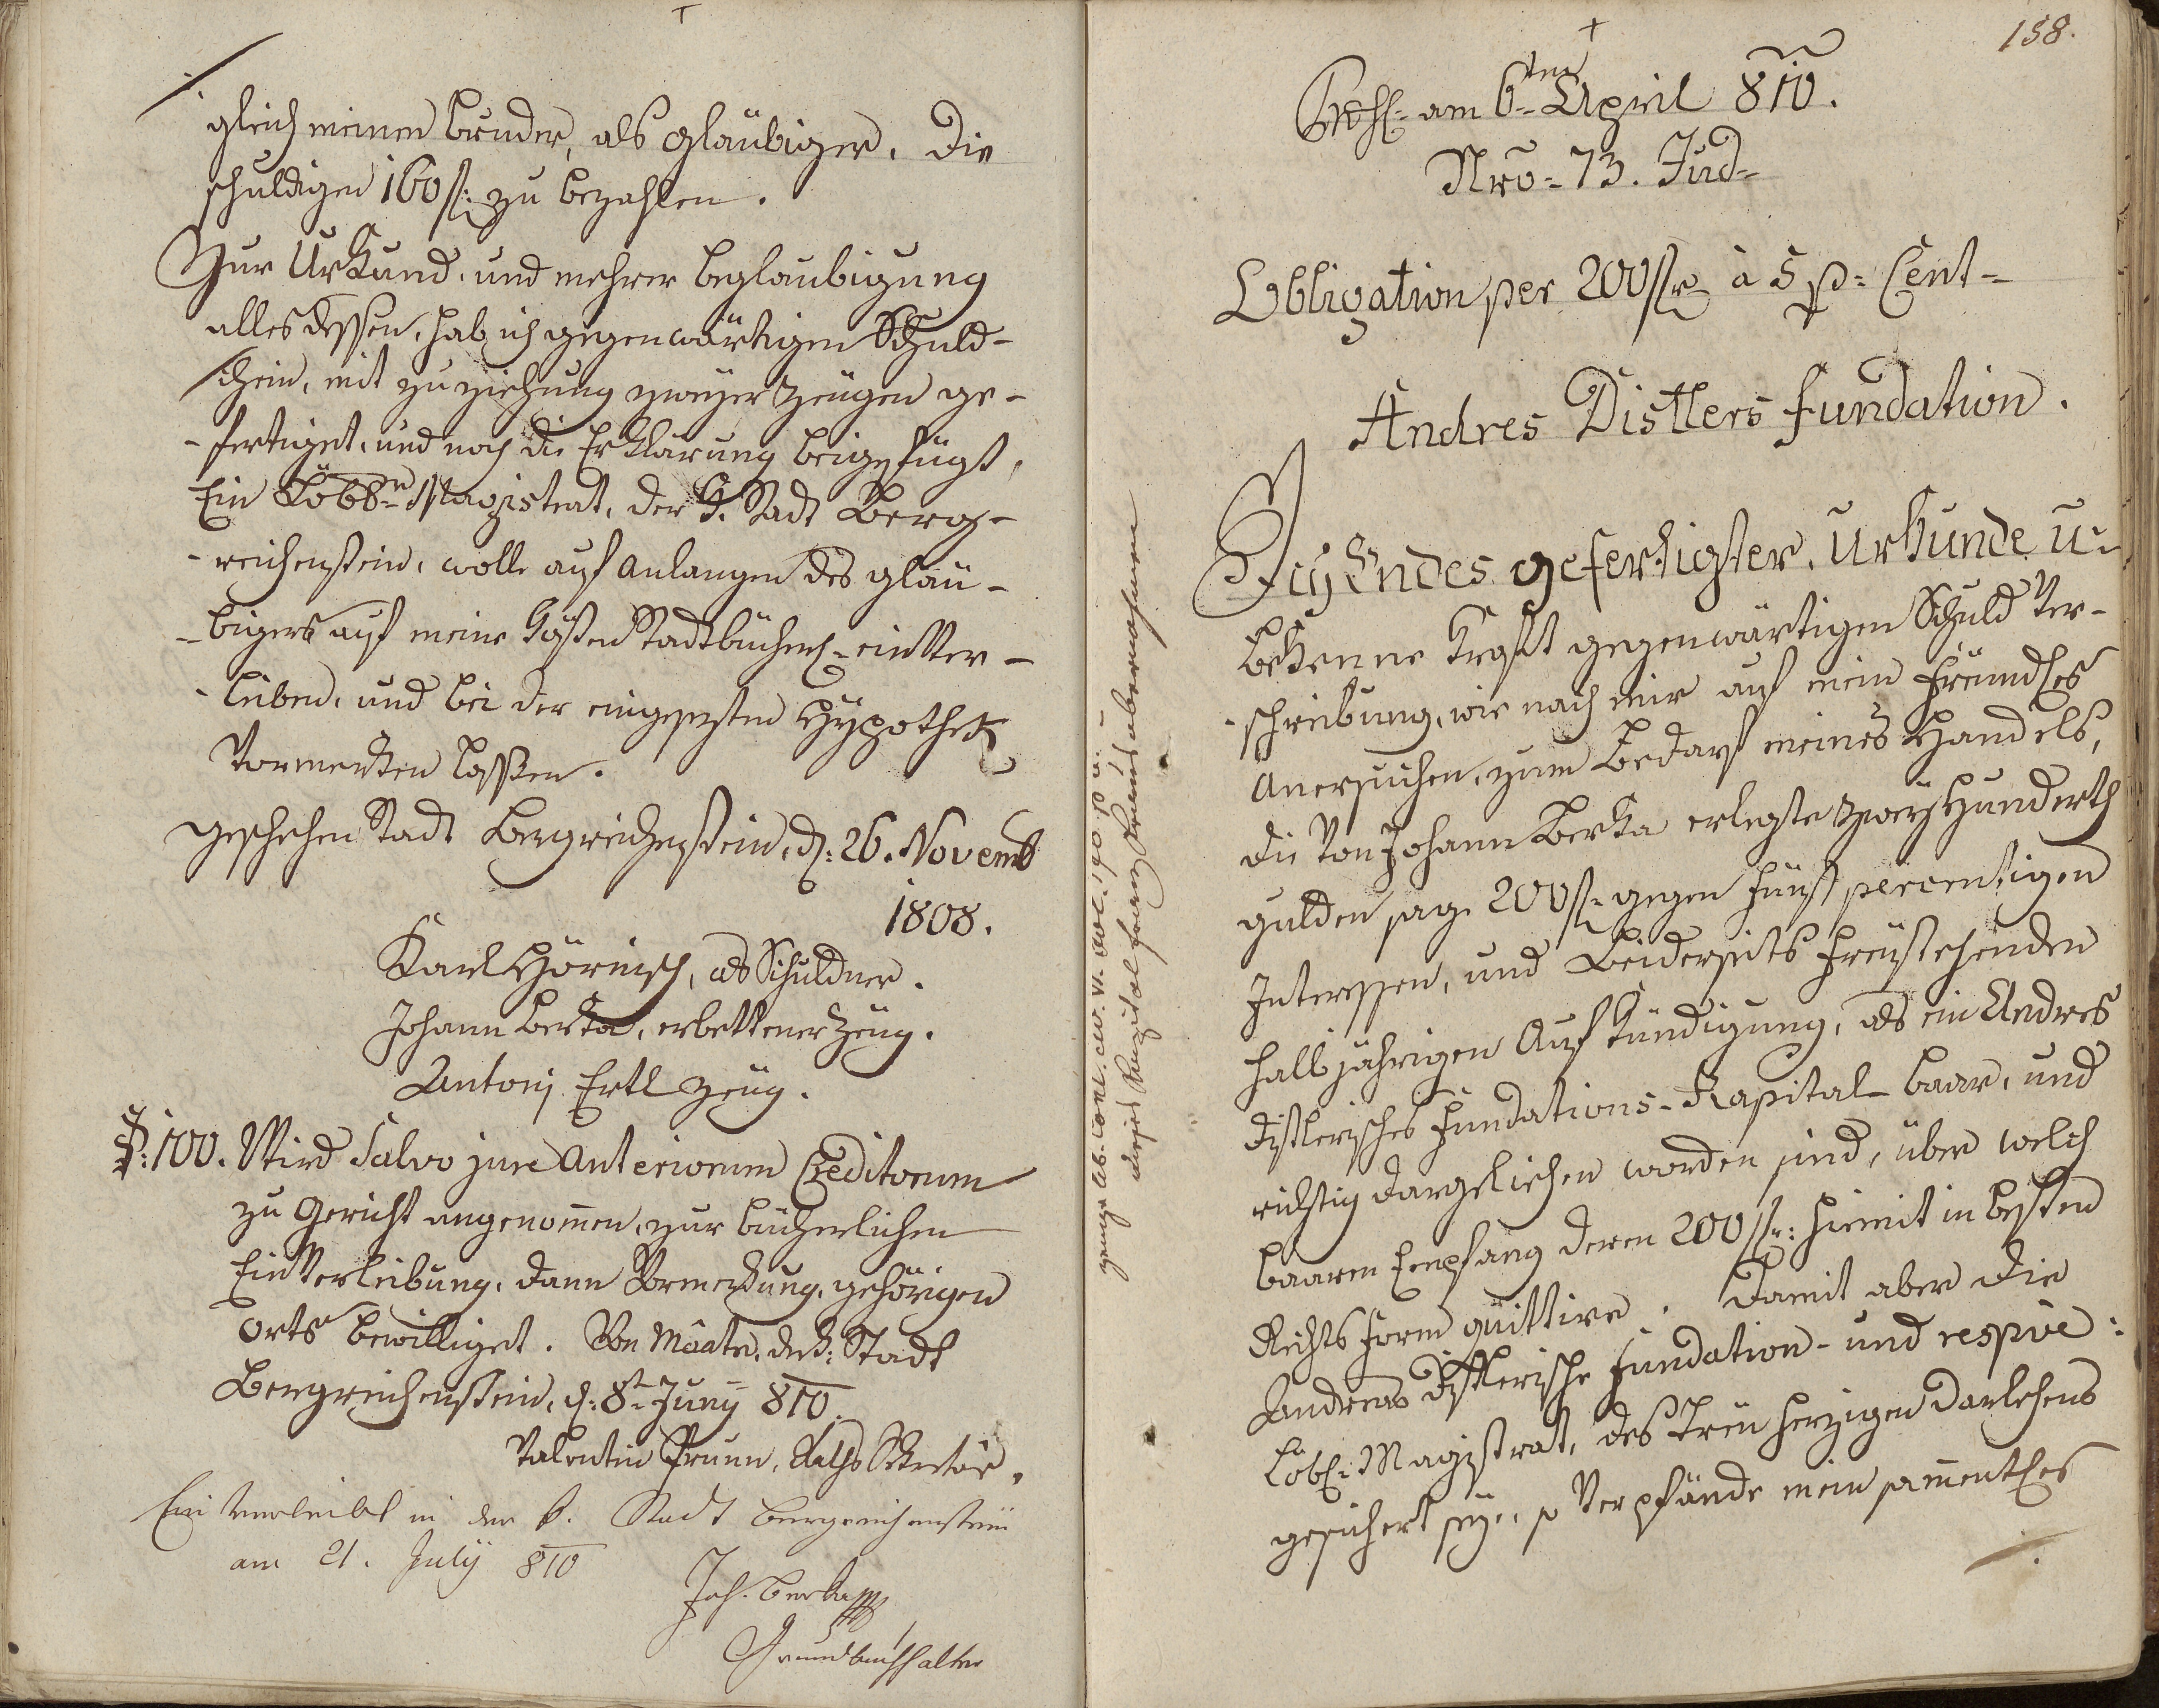 gleich meinen bruder, als gläubiger, die
schuldigen 160 fl: zu bezahlen.
Zur Urkund, und mehrer beglaubigung
alles dessen, hab ich gegenwärtigen Schuld-
schein, mit zu ziehung zweyer Zeugen ge-
-fertiget, und noch die Erklärung beigefügt,
Ein Löbl: Magistrat, der K. Stadt Berg-
-reichenstein, wolle auf anlangen des gläu-
-bigers auf meine Kösten Stadtbücherl: einver-
-leiben, und bei der eingesezten Hypothek
Vormerken lassen.
geschehen Stadt Bergreichenstein, d: 26. Novemb
1808.
Karl Hörnisch, als Schuldner.
Johann Berka, erbettener Zeug.
Antonj Ertl Zeug.
P: 100. Wird Salvo jure Anteriorum Creditorum
zu Gericht angenommen, zur bücherlichen
Einverleibung, dann Vormerkung, gehörigen
Orts bewilliget. Von Maate, der K: Stadt
Bergreichenstein, d: 8t Junÿ 810.
Valentin Prunn, Raths Sekretär.
Einverleibt in der k. Stadt Bergreichenstein
am 21. Julÿ 810
Joh. Berka
Grundbuchhalter
158.
am 6ten April 810.
Nro 73. Jud
Obligation per 200 fl à 5 p: Cent
Andres Distlers fundation.
Ich Endes gefertigter, Urkunde u
bekenne kraft gegenwärtigen Schuld Ver-
-schreibung, wie nach mir auf mein freundles
Anersuchen, zum Bedarf meines Handels,
die Von Johann Berka erlegte zweÿ Hunderth
gulden sage 200 fl gegen fünf percentigen
Interessen, und beiderseits freÿstehenden
halbjährigen Aufkündigung, als ein Andres
Distlerisches Fundations-Kapital baar, und
richtig dargeliehen worden sind, über welch
baaren Empfang deren 200 fl: hiemit in besten
Rechts form quittire. Damit aber die
Andreas Distlerische Fundation- und respive:
Löbl: Magistrat, des treü herzigen Darlehens
gesichert seÿ, so Verpfände mein sammentles